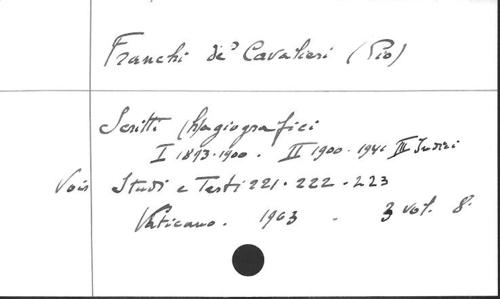 Franchi de' Cavalieri (Pio)
Scritti (h)agiografici
I 1893-1900. II 1900-1946 III Indici
Vois Studi e Testi 221. 222. 223
Vaticano. 1963 - 3 vol. 8.